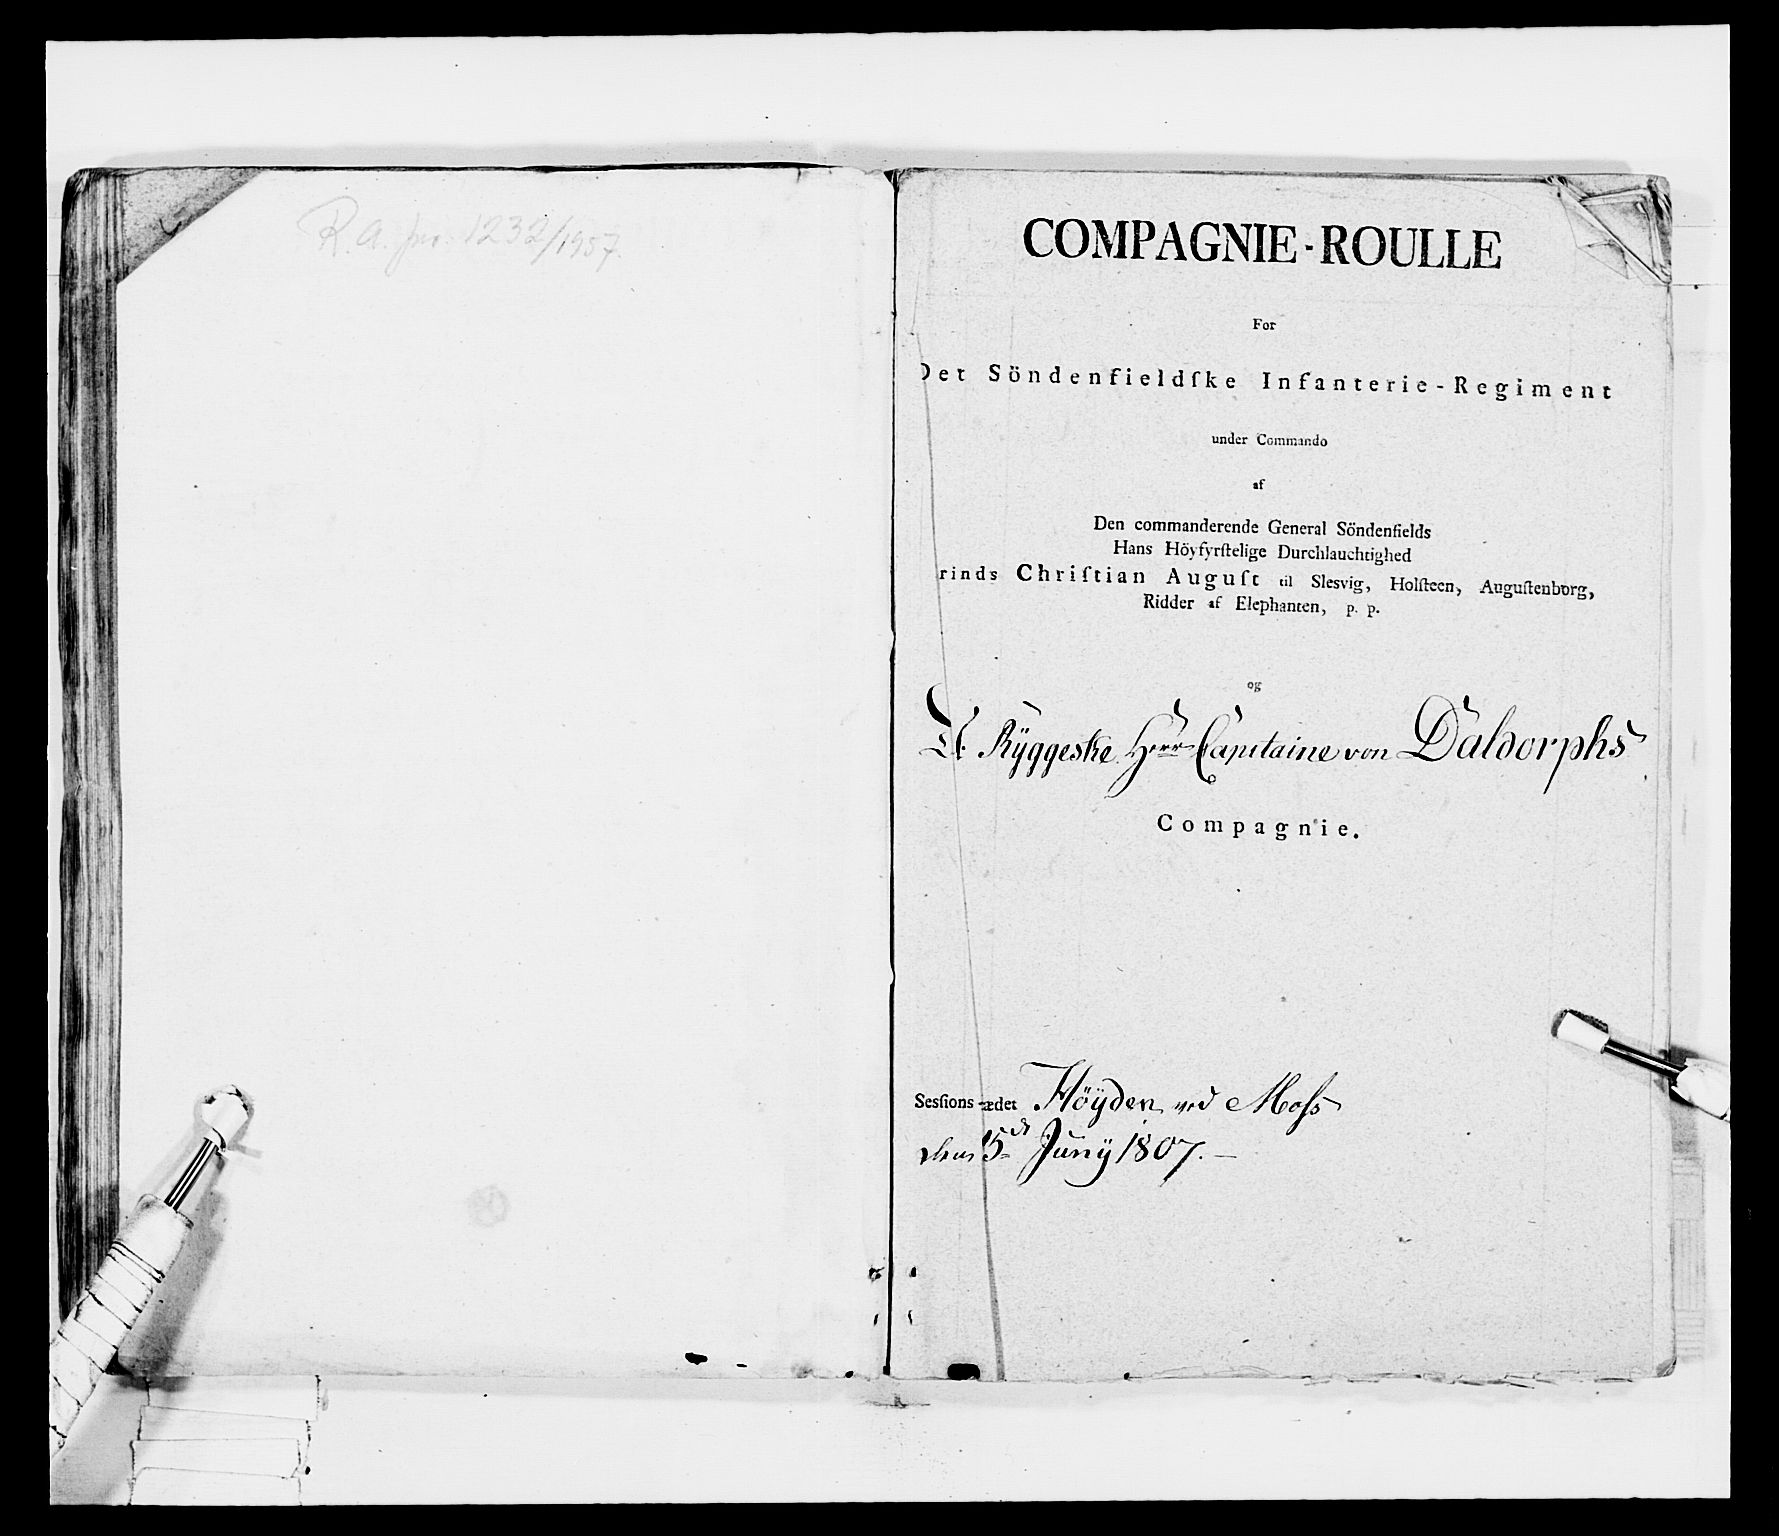 R.A. jnr. 1232/1957.
COMPAGNIE-ROULLE
For
Det Söndenfieldſke Infanterie-Regiment
under Commando
af
Den commanderende General Söndenfields
Hans Höyfyrſtelige Durchlauchtighed
rinds Chriſtian Auguſt til Slesvig, Holſteen, Auguſtenborg,
Ridder af Elephanten, p. p.
og
Rÿggeske Herr Capitaine von Daldorphs
Compagnie.
Sesſions-ædet Höÿden ved Moſs
den 5te Junÿ 1807.